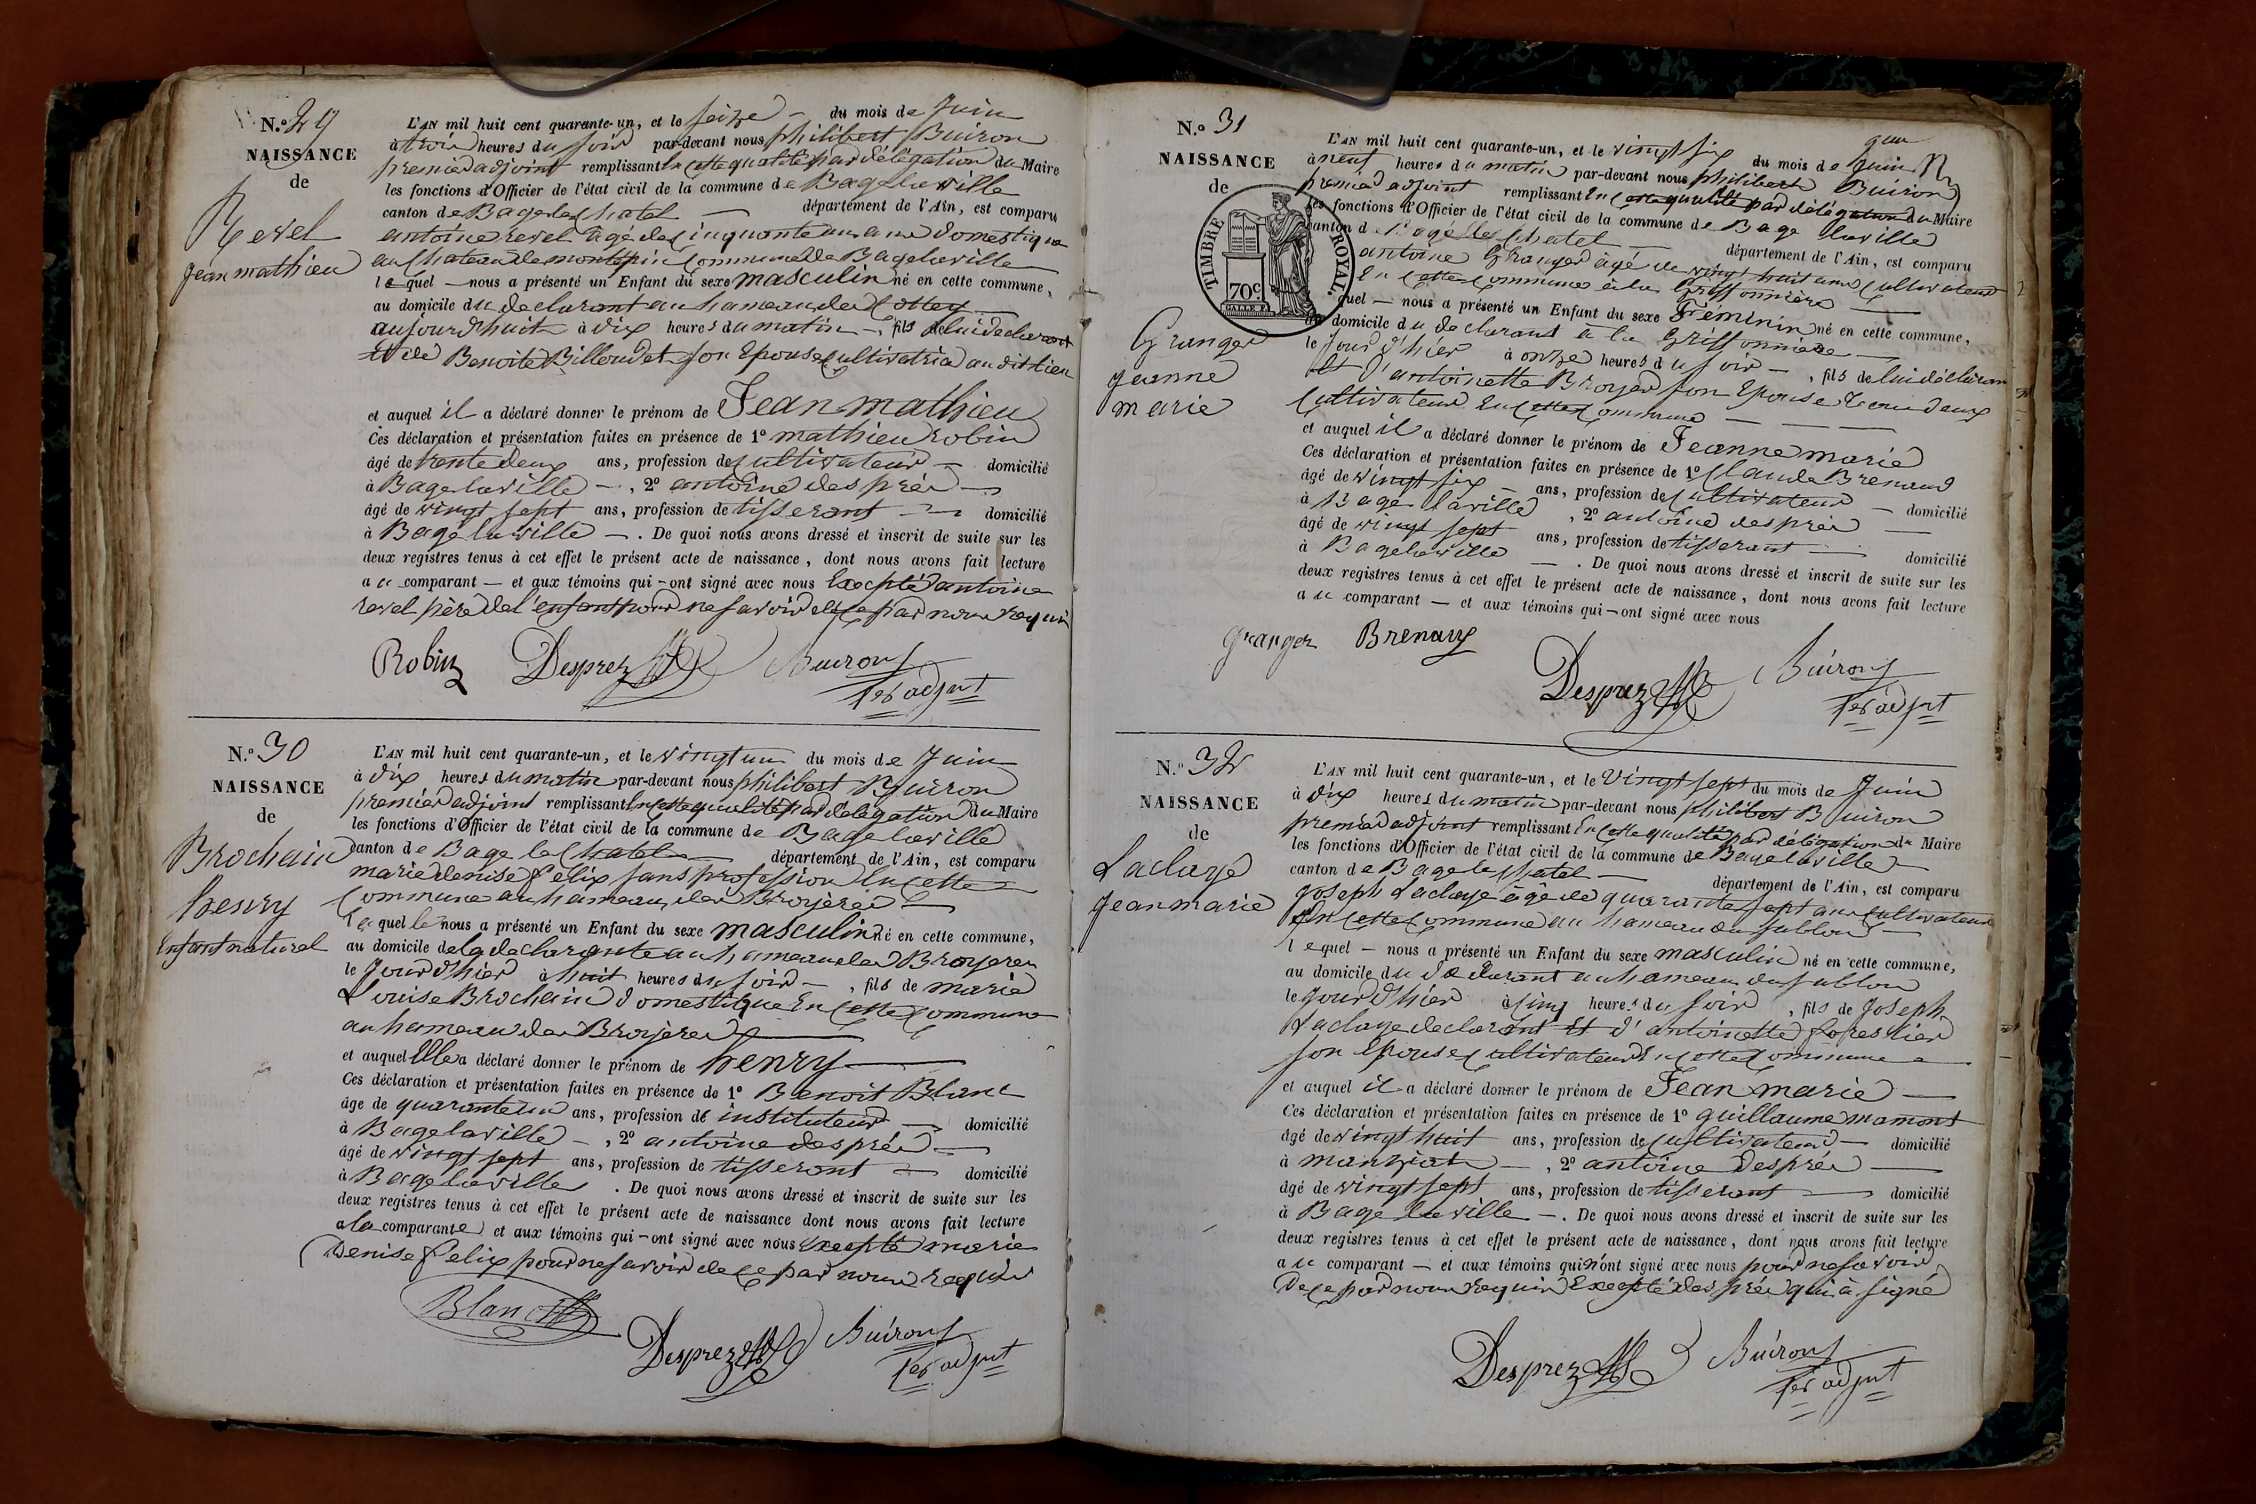 N.º 29
NAISSANCE
de
Revel
Jean mathieu
L'AN mil huit cent quarante-un, et le seize du mois de Juin
à trois heures du soir par-devant nous philibert Buiron
premier adjoint remplissant en cette qualité par délégation du Maire
les fonctions d'Officier de l'état civil de la commune de Bagé la ville
canton de Bagé le Chatel département de l'Ain, est comparu
antoine revel âgé de Cinquante un ans domestique
au Chateau de montépin Commune de Bagé la ville
lequel nous a présenté un Enfant du sexe masculin né en cette commune,
au domicile du declarant au hameau de
aujourd'huit à dix heures du matin, fils de lui declarant
et de Benoite Billoudet son Epouse Cultivatrice au dit lieu
et auquel il a déclaré donner le prénom de Jean mathieu
Ces déclaration et présentation faites en présence de 1º mathieu robin
âgé de trente deux ans, profession de Cultivateur domicilié
à Bagé la ville, 2º antoine després
âgé de vingt sept ans, profession de tisserant domicilié
à Bagé la ville. De quoi nous avons dressé et inscrit de suite sur les
deux registres tenus à cet effet le présent acte de naissance, dont nous avons fait lecture
au comparant et aux témoins qui ont signé avec nous Excepté antoine
revel père de l'enfant pour ne savoir de ce par nous requis
Robin Desprez Buiron
1er adjnt
N.º 30
NAISSANCE
de
Brochain
henry
Enfant naturel
L'AN mil huit cent quarante-un, et le vingt un du mois de Juin
à dix heures du matin par-devant nous philibert Buiron
premier adjoint remplissant en cette qualité par délégation du Maire
les fonctions d'Officier de l'état civil de la commune de Bagé la ville
canton de Bagé le Chatel département de l'Ain, est comparu
marie denise felix sans profession En cette
Commune au hameau des Broyères
laquelle nous a présenté un Enfant du sexe masculin né en cette commune,
au domicile de la declarante au hameau des Broyeres
le Jour d'hier à huit heures du soir, fils de marie
Louise Brochain domestique En cette Commune
au hameau des Broyères
et auquel Elle a déclaré donner le prénom de henry
Ces déclaration et présentation faites en présence de 1º Benoit Blanc
âgé de quarante un ans, profession de instituteur domicilié
à Bagé la ville, 2º antoine després
âgé de vingt sept ans, profession de tisserant domicilié
à Bagé la ville. De quoi nous avons dressé et inscrit de suite sur les
deux registres tenus à cet effet le présent acte de naissance dont nous avons fait lecture
a la comparante et aux témoins qui ont signé avec nous Excepté marie
Denise felix pour ne savoir de ce par nous requise
Blanc Desprez Buiron
1er adjnt
N.º 31
NAISSANCE
de
TIMBRE ROYAL.
70c.
Granger
Jeanne
marie
L'AN mil huit cent quarante-un, et le vingt six du mois de Juin
à neuf heures du matin par-devant nous philibert Buiron
premier adjoint remplissant En cette qualité par délégation du Maire
les fonctions d'Officier de l'état civil de la commune de Bagé la ville
canton de Bagé le Chatel département de l'Ain, est comparu
antoine Granger âgé de vingt huit ans Cultivateur
En cette Commune à la Griffonnière
quel nous a présenté un Enfant du sexe Féminin né en cette commune,
au domicile du declarant à la Griffonnière
le Jour d'hier à onze heures du soir, fils de lui déclarant
Et d'antoinette Broyer son Epouse tous deux
Cultivateurs En cette Commune
et auquel il a déclaré donner le prénom de Jeanne marie
Ces déclaration et présentation faites en présence de 1º Claude Brenaud
âgé de vingt six ans, profession de Cultivateur domicilié
à Bagé la ville, 2º antoine després
âgé de vingt sept ans, profession de tisserant domicilié
à Bagé la ville. De quoi nous avons dressé et inscrit de suite sur les
deux registres tenus à cet effet le présent acte de naissance, dont nous avons fait lecture
au comparant et aux témoins qui ont signé avec nous
granger Brenaud Desprez Buiron
1er adjnt
N.º 32
NAISSANCE
de
Laclaye
Jean marie
L'AN mil huit cent quarante-un, et le vingt sept du mois de Juin
à dix heures du matin par-devant nous philibert Buiron
premier adjoint remplissant En cette qualité par délégation du Maire
les fonctions d'Officier de l'état civil de la commune de Bagé la ville
canton de Bagé le Chatel département de l'Ain, est comparu
Joseph Laclaye âgé de quarante sept ans Cultivateur
En cette Commune au hameau du sablon
lequel nous a présenté un Enfant du sexe masculin né en cette commune,
au domicile du declarant au hameau du sablon
le Jour d'hier à Cinq heures du soir, fils de Joseph
Laclaye declarant Et d'antoinette forestier
son Epouse Cultivateur En cette Commune
et auquel il a déclaré donner le prénom de Jean marie
Ces déclaration et présentation faites en présence de 1º guillaume mamont
âgé de vingt huit ans, profession de Cultivateur domicilié
à manziat, 2º antoine Després
âgé de vingt sept ans, profession de tisserant domicilié
à Bagé la ville. De quoi nous avons dressé et inscrit de suite sur les
deux registres tenus à cet effet le présent acte de naissance, dont nous avons fait lecture
au comparant et aux témoins qui n'ont signé avec nous pour ne savoir
De ce par nous requis Excepté després qui à signé
Desprez Buiron
1er adjnt